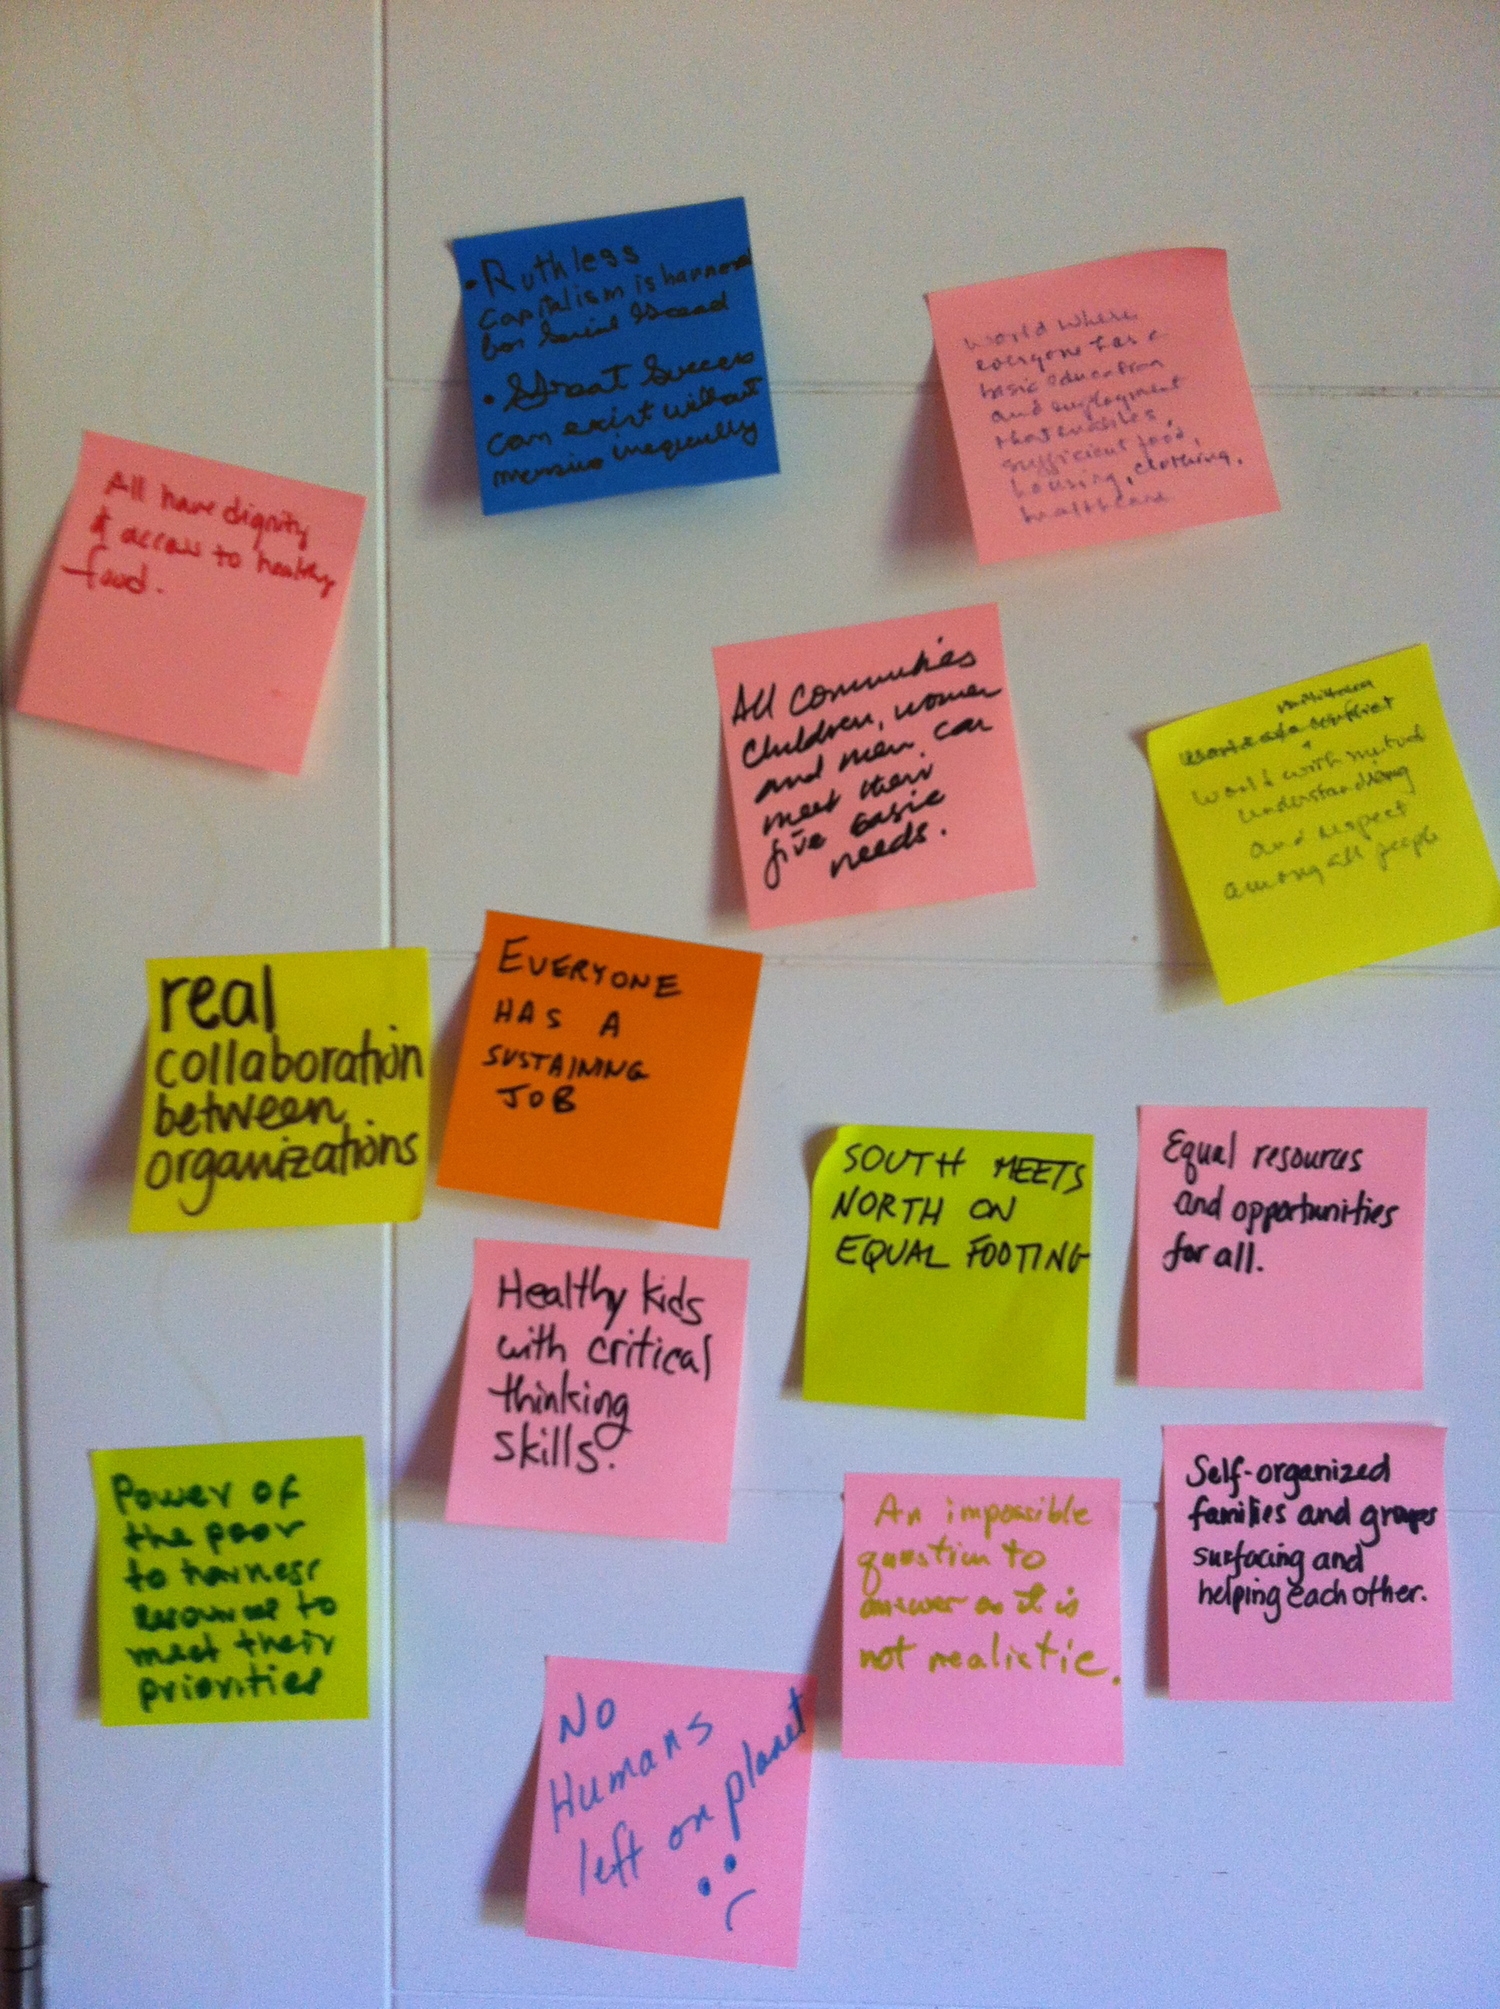 • Ruthless
Capitalism is harnessed
for Social Good
• Great Success
can exist without
massive inequality
World where
everyone has a
basic education
and employment
that enables
sufficient food,
housing, clothing,
healthcare
All have dignity
& access to healthy
food.
All communities
children, women
and men, can
meet their
five basic
needs.
World with mutual
understanding
and respect
among all people
real
collaboration
between
organizations
EVERYONE
HAS A
SUSTAINING
JOB
SOUTH MEETS
NORTH ON
EQUAL FOOTING
Equal resources
and opportunities
for all.
Healthy kids
with critical
thinking
skills.
Power of
the poor
to harness
resources to
meet their
priorities
An impossible
question to
answer as it is
not realistic.
Self-organized
families and groups
surfacing and
helping each other.
No
Humans
left on planet